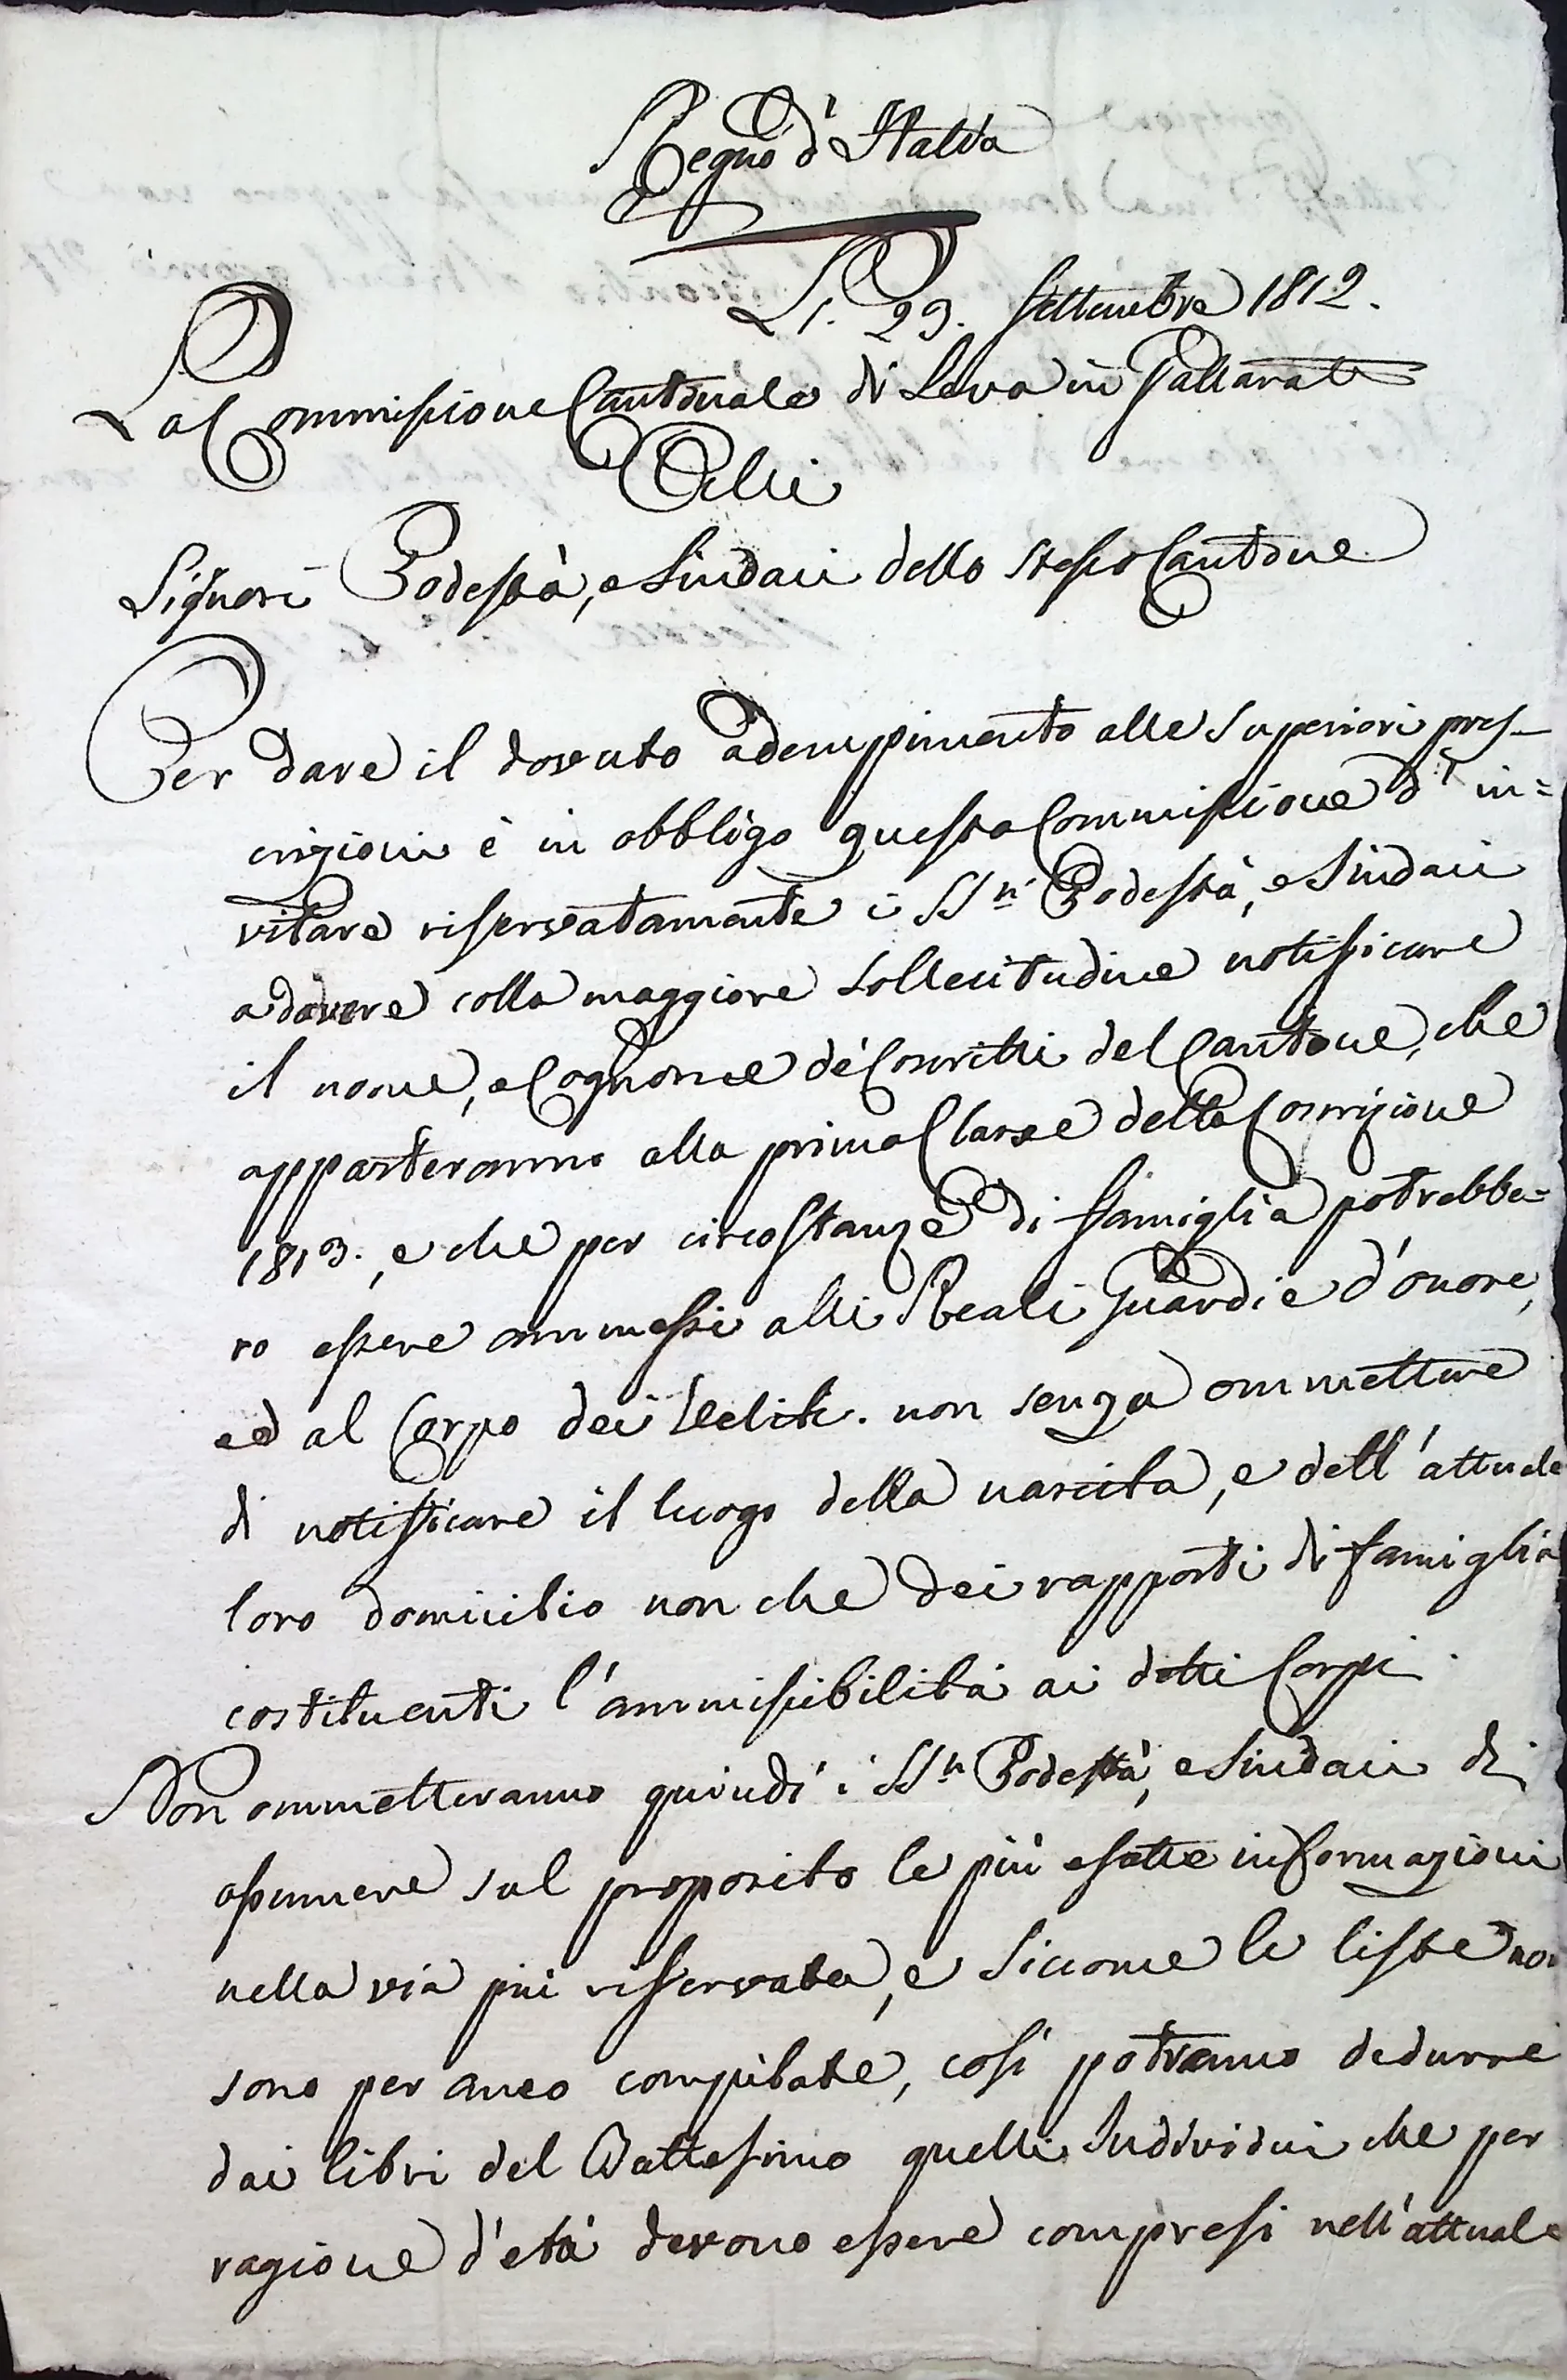 Regno d'Italia
Li. 29. Settembre 1812.
La Commissione Cantonale di Leva in Gallarate
Alli
Signori Podestà, e Sindaci dello stesso Cantone
Per dare il dovuto adempimento alle superiori pres-
crizioni è in obbligo questa Commissione d'in=
vitare riservatamente i SSri Podestà, e Sindaci
a dovere colla maggiore sollecitudine notificare
il nome, e Cognome de' Conscritti del Cantone, che
apparteranno alla prima Classe della Coscrizione
1813., e che per circostanze di famiglia potrebbe-
ro essere ammessi alli Reali Guardie d'onore,
ed al Corpo dei Veliti. non senza ommettere
di notificare il luogo della nascita, e dell'attuale
loro domicilio non che dei rapporti di famiglia
costituenti l'ammissibilità ai detti Corpi.
Non ommetteranno quindi i SSri Podestà, e Sindaci di
assumere sul proposito le più esatte informazioni
nella via più risservata, e siccome le liste non
sono per anco compilate, così potranno dedurre
dai libri del Battesimo quelli Individui che per
ragione d'età devono essere compresi nell'attuale